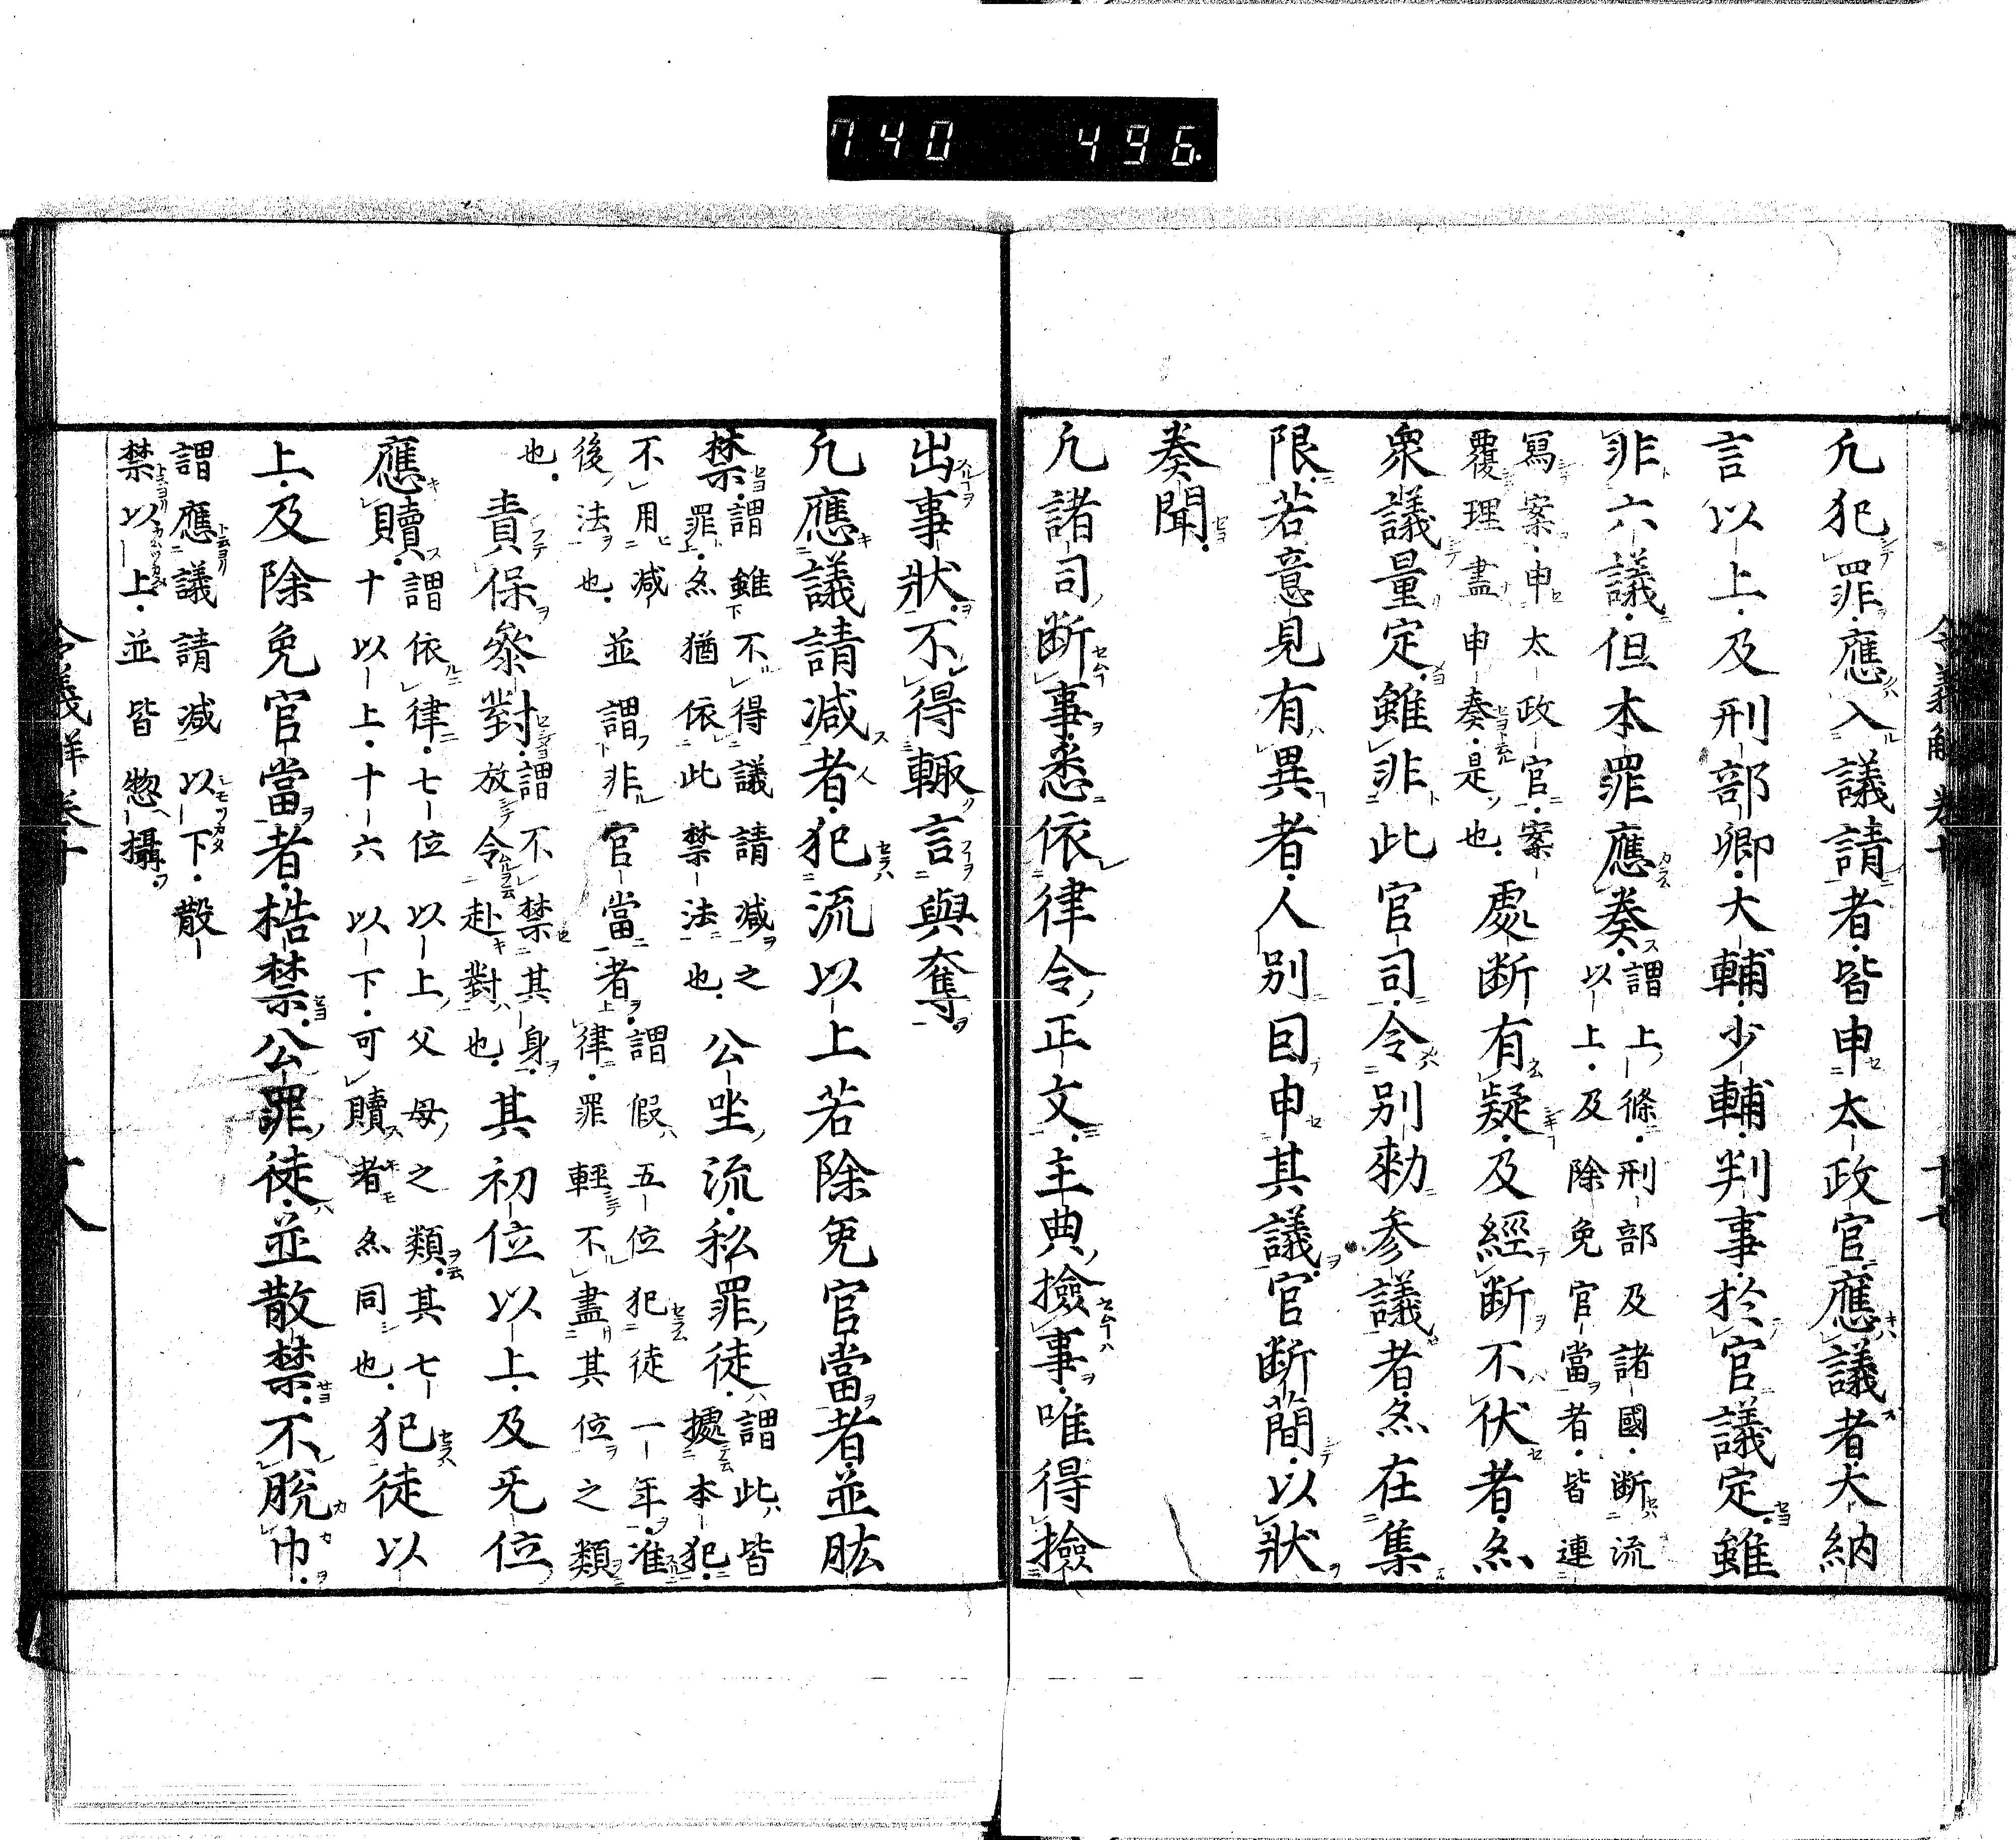 740 496
令義解 卷十 十七
凢犯罪應入議請者皆申太政官應議者大納
言以上及刑部卿大輔少輔判事於官議定雖
非六議但本罪應奏謂上條刑部及諸國断流以上及除免官當者皆連
寫案申太政官案覆理盡申奏是也處断有疑及經断不伏者亦
衆議量定雖非此官司令別勅参議者亦在集
限若意見有異者人別因申其議官断蕳以状
奏聞
凢諸司断事悉依律令正文主典撿事唯得撿
出事狀不得輙言與奪
凢應議請减者犯流以上若除免官當者並肱
禁謂雖不得議請减之罪亦猶依此禁法也公坐流私罪徒謂此皆據本犯
不用减後法也並謂非官當者謂假五位犯徒一年准律罪輕不盡其位之類
也責保叅對謂不禁其身放令赴對也其初位以上及无位
應贖謂依律七位以上父母之類其七十以上十六以下可贖者亦同也犯徒以
上及除免官當者梏禁公罪徒並散禁不脫巾
謂應議請减以下散
禁以上並皆惣攝